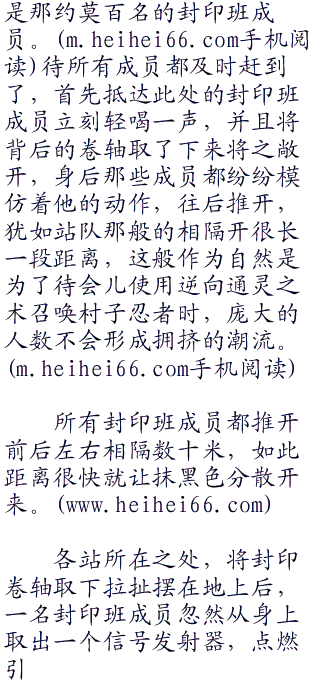 是那约莫百名的封印班成
员。(m.heihei66.com手机阅
读)待所有成员都及时赶到
了，首先抵达此处的封印班
成员立刻轻喝一声，并且将
背后的卷轴取了下来将之敞
开，身后那些成员都纷纷模
仿着他的动作，往后推开，
犹如站队那般的相隔开很长
一段距离，这般作为自然是
为了待会儿使用逆向通灵之
术召唤村子忍者时，庞大的
人数不会形成拥挤的潮流。
(m.heihei66.com手机阅读)
　　所有封印班成员都推开
前后左右相隔数十米，如此
距离很快就让抹黑色分散开
来。(www.heihei66.com)
　　各站所在之处，将封印
卷轴取下拉扯摆在地上后，
一名封印班成员忽然从身上
取出一个信号发射器，点燃
引